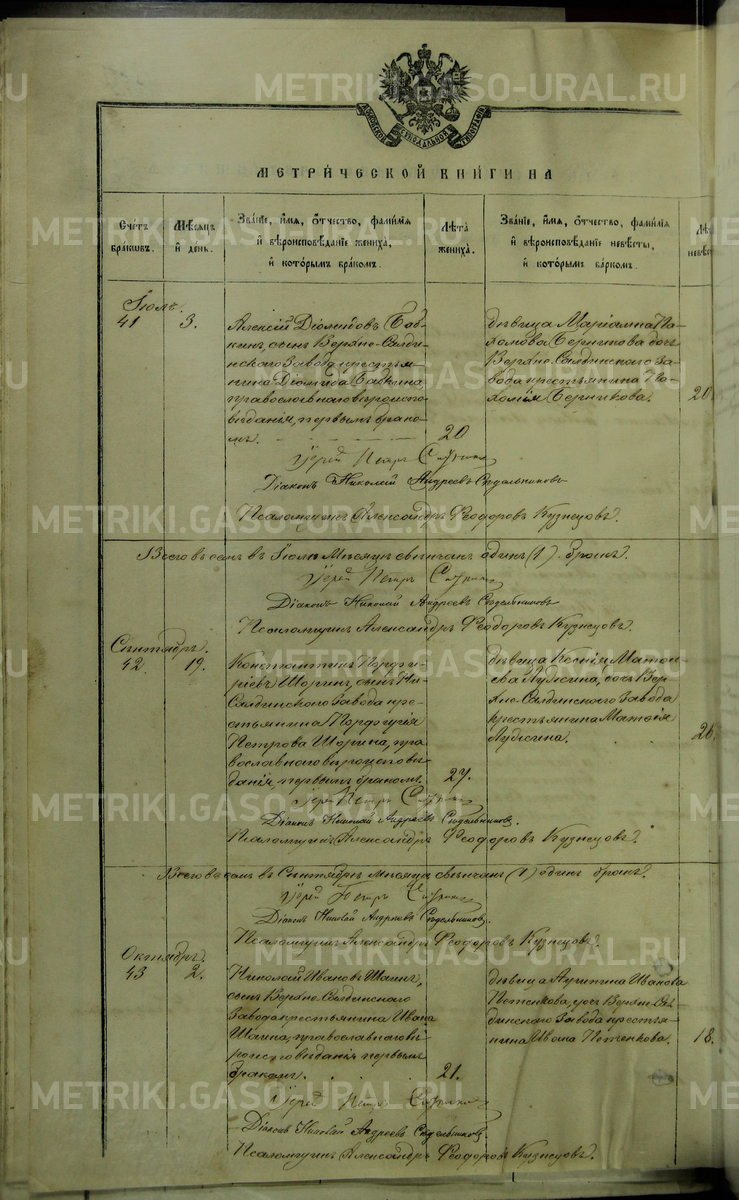 МЕТРИ́ЧЕСКОЙ КНИ́ГИ НА
Сче́тъ бра́ковъ.
Мѣ́сяцъ и̂ де́нь.
Зва́нїе, и́мя, ѻ́тчество, фами́лїя и̂ вѣроисповѣ́данїе жениха̀, и̂ кото́рымъ бра́комъ.
Лѣ́та жениха̀.
Зва́нїе, и́мя, ѻ́тчество, фами́лїя и̂ вѣроисповѣ́данїе невѣ́сты, и̂ кото́рымъ ба́ркомъ.
Іюль.
41
3.
Алексій Діомидовъ Баб-
кинъ, сынъ Верхне-Салди-
нскаго Завода крестья-
нина Діомида Бабкина,
православнаго вѣроиспо-
вѣданія, первымъ брако-
мъ.
20
дѣвица Маріамна Па-
хомова Берникова дочь
Верхне-Салдинскаго За-
вода крестьянина Па-
хомія Берникова.
20
Іерей Петръ
Діаконъ Николай Андреевъ Сѣдельниковъ
Псаломщикъ Александръ Ѳеодоровъ Кузнецовъ.
Всего въ семъ въ Іюлѣ Мѣсяцѣ свѣнчанъ одинъ (1) бракъ.
Іерей Петръ
Діаконъ Николай Андреевъ Сѣдельниковъ
Псаломщикъ Александръ Ѳеодоровъ Кузнецовъ.
Сентябрь.
42
19.
Константинъ Порфи-
ріевъ Шоринъ, сынъ Ни-
Салдинскаго Завода кре-
стьянина Порфирія
Петрова Шорина, пра-
вославнаго вѣроисповѣ-
данія, первымъ бракомъ.
27.
дѣвица Ксенія Матѳі-
ева дочь Вер-
хне-Салдинскаго Завода
крестьянина Матѳія
26.
Іерей Петръ
Діаконъ Николай Андреевъ Сѣдельниковъ.
Псаломщикъ Александръ Ѳеодоровъ Кузнецовъ.
Всего въ семъ въ Сентябрѣ Мѣсяцѣ свѣнчанъ (1) одинъ бракъ.
Іерей Петръ
Діаконъ Николай Андреевъ Сѣдельниковъ.
Псаломщикъ Александръ Ѳеодоровъ Кузнецовъ.
Октябрь.
43
2.
Николай Ивановъ Шаинъ,
сынъ Верхне-Салдинскаго
Завода крестьянина Ивана
Шаина, православнаго вѣ-
роисповѣданія первымъ
бракомъ.
21.
дѣвица Агрипина Иванова
дочь Верхне-Сал-
динскаго Завода крестья-
нина Ивана
18.
Іерей Петръ
Діаконъ Николай Андреевъ Сѣдельниковъ.
Псаломщикъ Александръ Ѳеодоровъ Кузнецовъ.
METRIKI.GASO-URAL.RU